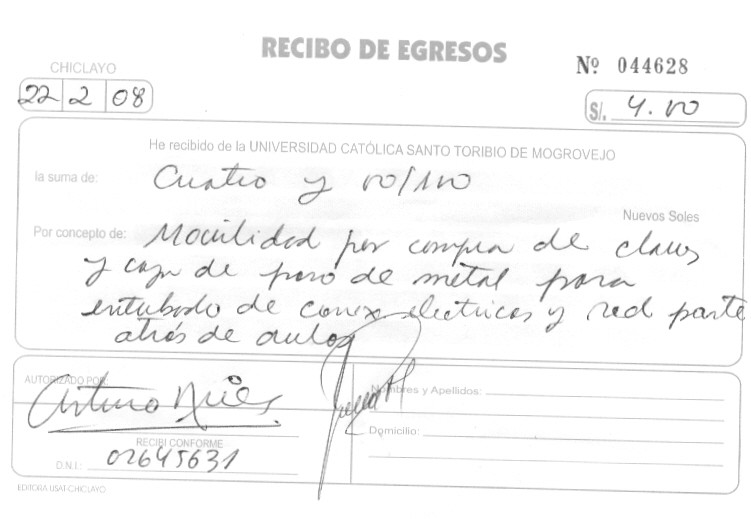 RECIBO DE EGRESOS
CHICLAYO
Nº 044628
22 2 08
S/. 4.00
He recibido de la UNIVERSIDAD CATÓLICA SANTO TORIBIO DE MOGROVEJO
la suma de: Cuatro y 00/100
Nuevos Soles
Por concepto de: Movilidad por compra de clavos
y caja de paso de metal para
entubado de conex electricas y red parte
atrás de aulas
AUTORIZADO POR:
Arturo
Nombres y Apellidos:
RECIBI CONFORME
Domicilio:
D.N.I.: 02645631
EDITORA USAT-CHICLAYO